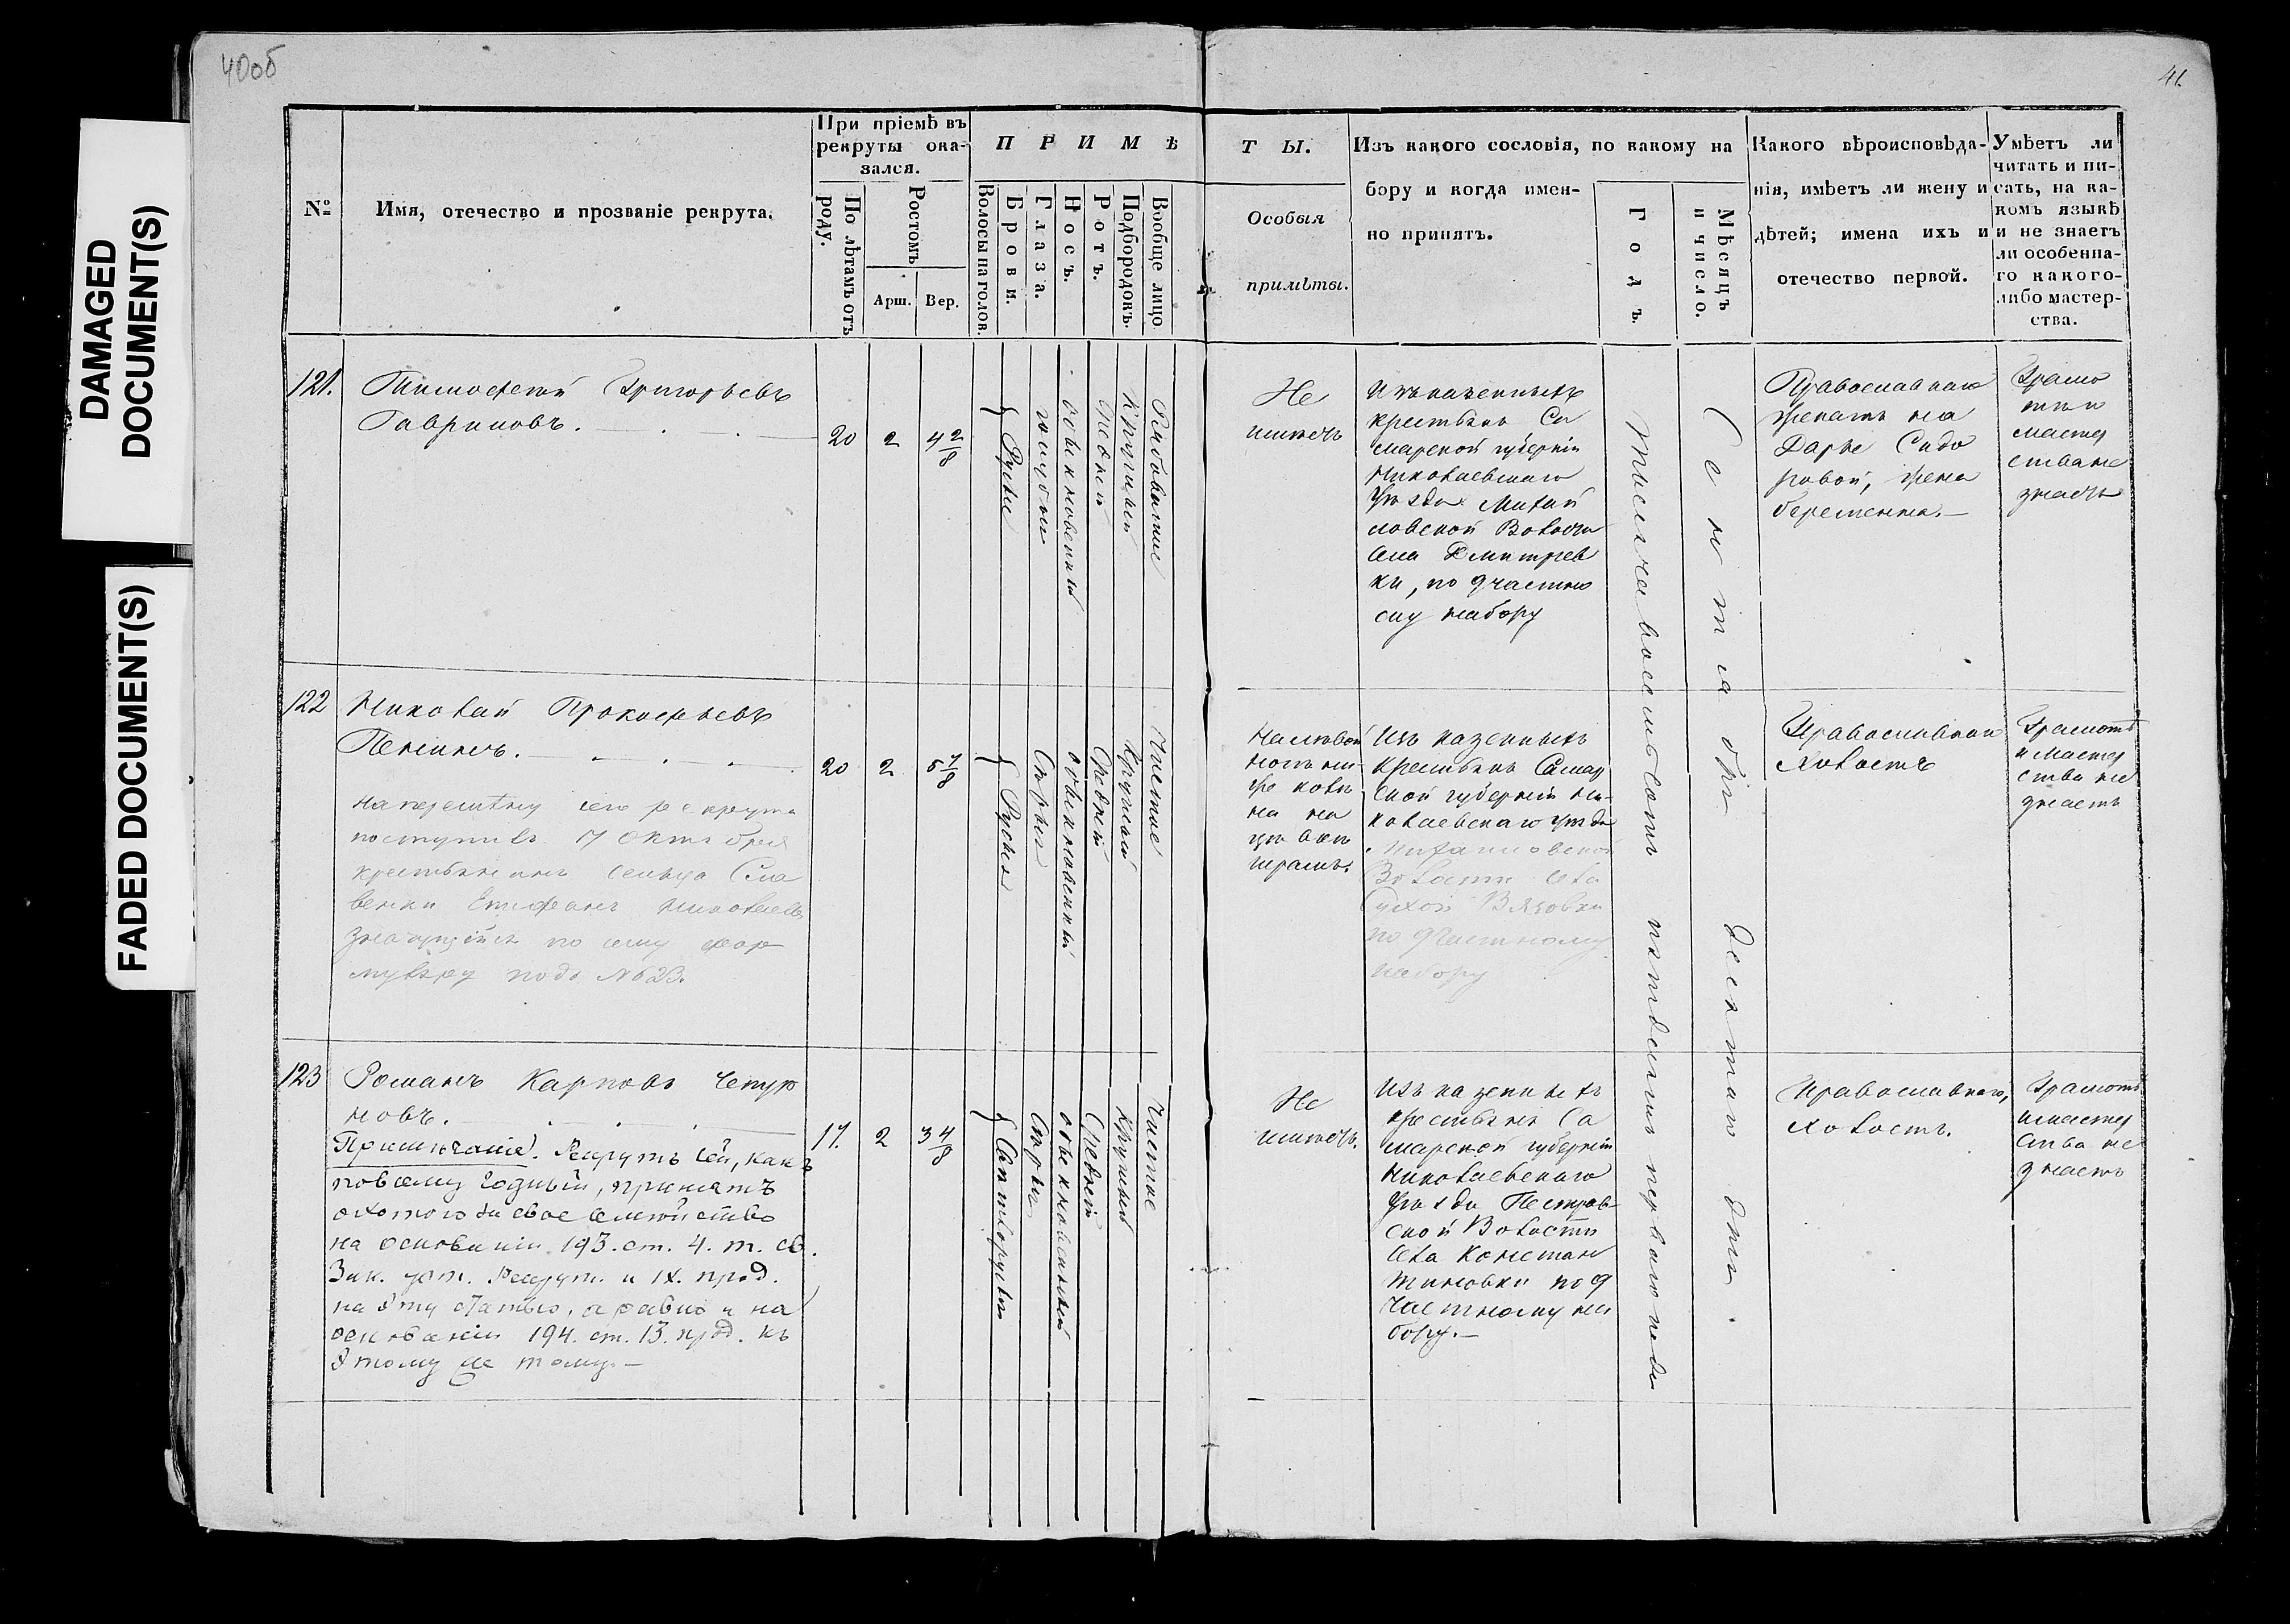 40об
41.
DAMAGED
DOCUMENT(S)
FADED DOCUMENT(S)
№
Имя, отечество и прозваніе рекрута.
При пріемѣ въ
рекруты ока-
зался.
По лѣтамъ отъ
роду.
Ростомъ
Арш.
Вер.
П Р И М Ѣ
Волосы на голов.
Брови.
Глаза.
Носъ.
Ротъ.
Подбородокъ.
Вообще лицо
Т Ы.
Особыя
примѣты.
Изъ какого сословія, по какому на
бору и когда имен-
но принятъ.
Годъ.
Мѣсяцъ
и число.
Какого вѣроисповѣда-
нія, имѣетъ ли жену и
дѣтей; имена ихъ и
отечество первой.
Умѣетъ ли
читать и пи-
сать, на ка-
комъ языкѣ
и не знаетъ
ли особенна-
го какого-
либо мастер-
ства.
121.
Тимофей Григорьевъ
Гавриловъ.
20
2
4 2/8
Русые
голубые
обыкновенный
средній
круглый
Рябоватое
Не
имѣетъ
Изъ казенныхъ
крестьянъ Са
марской губерніи
Николаевскаго
Уѣзда
ловской Волости
села Дмитрев
ки, по 9 частно
му набору
Тысяча восемьсотъ пятьдесятъ перваго года
Сентября десятаго дня.
Православнаго
женатъ на
Дарье Сидо
ровой, жена
беременна.
Грамо
ты и
мастер
ства не
знаетъ
122
Николай Прокофьевъ
20
2
5 7/8
На перемѣну сего рекрута
поступилъ 17 Октября
крестьянинъ сельца Сла
венки Епифанъ Николаевъ
значущійся по сему фор
муляру подъ № 623.
Русые
Сѣрые
обыкновенный
Средній
Круглый
Чистое
На лѣвой
Изъ казенныхъ
крестьянъ Самар
ской губерніи Ни-
колаевскаго уѣзда
Волости села
Сухой Вязовки
по 9 частному
набору
Православнаго
Холостъ
Грамотѣ
и мастер
ства не
знаетъ
123
Романъ Карповъ Чепур
новъ.
17.
2
3 4/8
Примѣчаніе. Рекрутъ сей, какъ
по всему годный, принятъ
охотою за свое семейство
на основаніи 193. ст. 4. т. св.
Зак. уст. Рекрут. и IX. прод.
на эту статью, а равно и на
основаніи 194. ст. 13. прод. къ
этому же тому.
Свѣтлорусые
Сѣрые
обыкновенный
Средній
Круглый
Чистое
Не
имѣетъ.
Изъ казенныхъ
крестьянъ Са
марской губерніи
Николаевскаго
Уѣзда Пестрав
ской Волости
села Констан
тиновки по 9
частному на
бору.
Православнаго,
холостъ.
Грамотѣ
и мастер
ства не
знаетъ